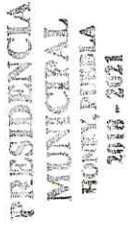 PRESIDENCIA
MUNICIPAL
HONEY, PUEBLA
2018 - 2021